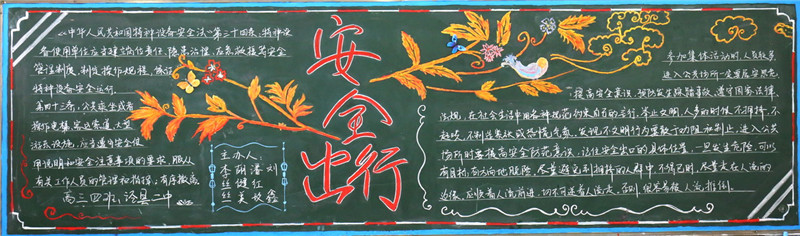 《中华人民共和国特种设备安全法》第三十四条,特种设
备使用单位应当建立岗位责任、隐患治理、应急救援等安全
管理制度,制定操作规程,保证
特种设备安全运行。
第四十三条,公众乘坐或者
操作电梯、客运索道、大型
游乐设施,应当遵守安全使
用说明和安全注意事项的要求,服从
有关工作人员的管理和指挥;有序撤离
高三四班,泠县一中
安全出行
主办人:
李丽潘刘
丝健红
丝吴权鑫
参加集体活动时,人员较多
进入公共场所一定要有安全意
提高安全意识,预防发生踩踏事故,遵守国家法律
法规,在社会生活中用各种规范约束自己的言行,举止文明,人多的时候不拥挤、不
起哄、不制造紧张或恐慌气氛,发现不文明行为要敢于劝阻和制止,进入公共
场所时要提高安全防范意识,记住安全出口的具体位置,一旦发生危险,可以
有目标、有方向地脱险,尽量避免到拥挤的人群中,不得已时,尽量走在人流的
边缘,应顺着人流前进,切不可逆着人流走,否则,很容易被人流推倒。